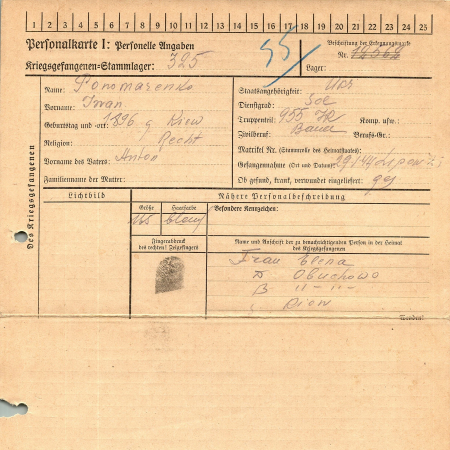 1 2 3 4 5 6 7 8 9 10 11 12 13 14 15 16 17 18 19 20 21 22 23 24 25
Personalkarte I: Personelle Angaben
Kriegsgefangenen-Stammlager: 325
55
Beschriftung der Erkennungsmarke
Nr.
Lager:
Des Kriegsgefangenen
Name: Ponomarenko
Vorname: Iwan
Geburtstag und -ort: 1896. g Kiew
Religion: Recht
Vorname des Vaters: Anton
Familienname der Mutter:
Staatsangehörigkeit: Ukr
Dienstgrad: Sol
Truppenteil: 955 IR Komp. usw.:
Zivilberuf: Bauer Berufs-Gr.:
Matrikel Nr. (Stammrolle des Heimatstaates):
Gefangennahme (Ort und Datum):
Ob gesund, krank, verwundet eingeliefert: ges
Lichtbild
Nähere Personalbeschreibung
Größe
Haarfarbe
Besondere Kennzeichen:
165
Fingerabdruck
des rechten! Zeigefingers
Name und Anschrift der zu benachrichtigenden Person in der Heimat
des Kriegsgefangenen
Frau Elena
D Obuchowo
B " - " -
Kiew
Wenden!